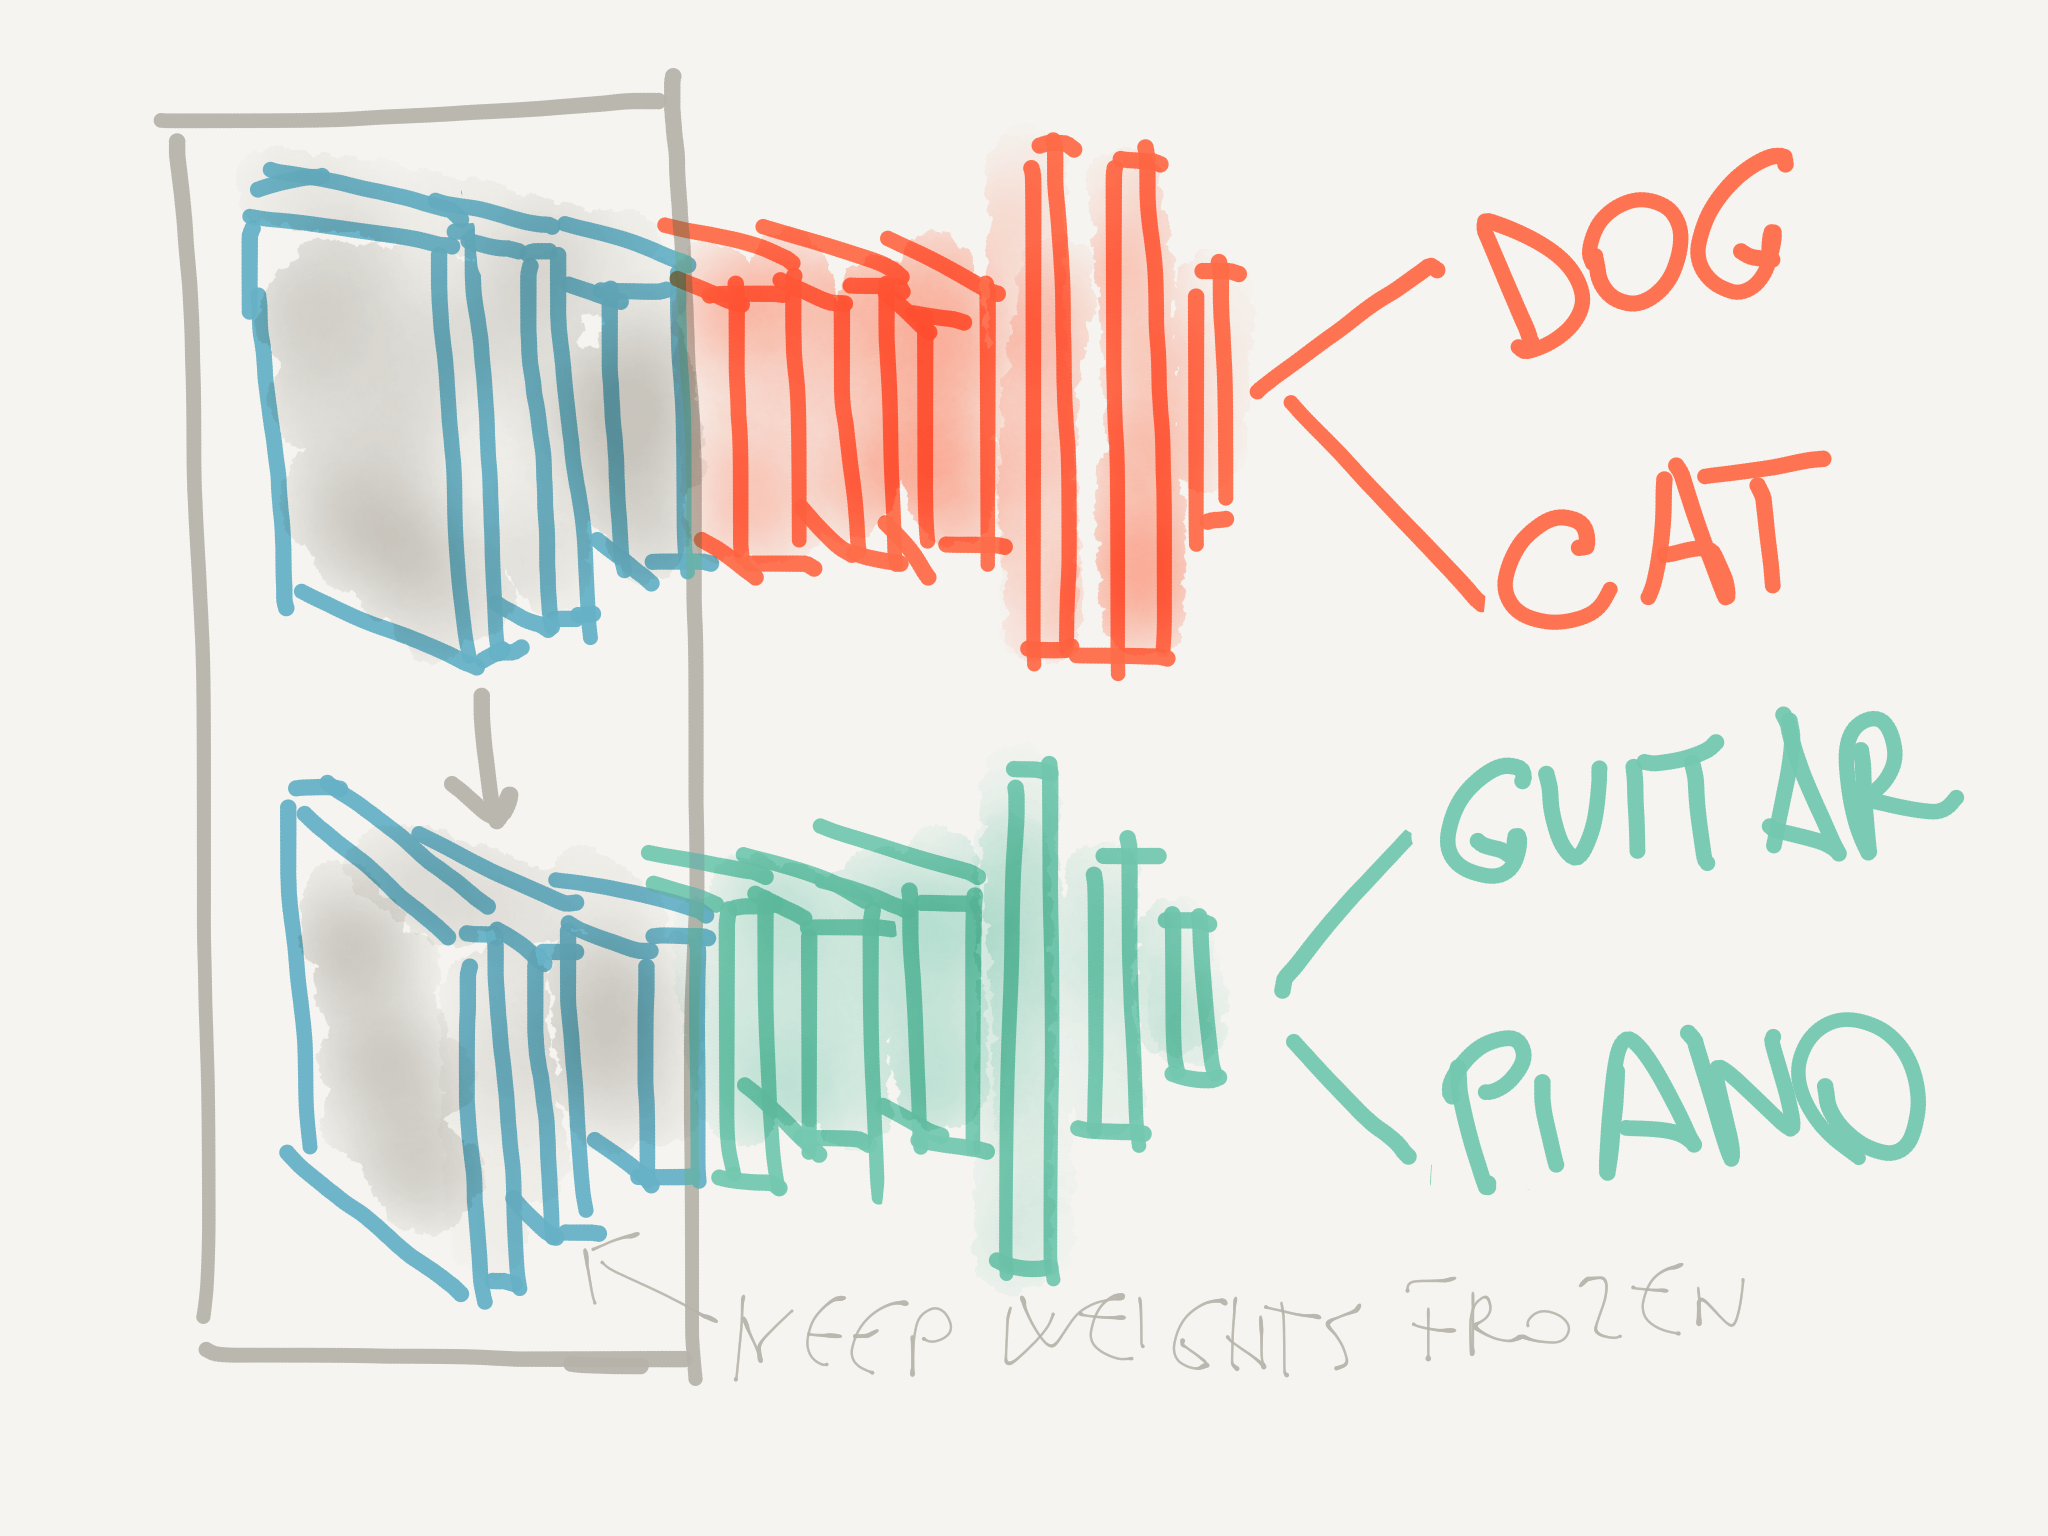 DOG
CAT
GUITAR
PIANO
KEEP WEIGHTS FROZEN